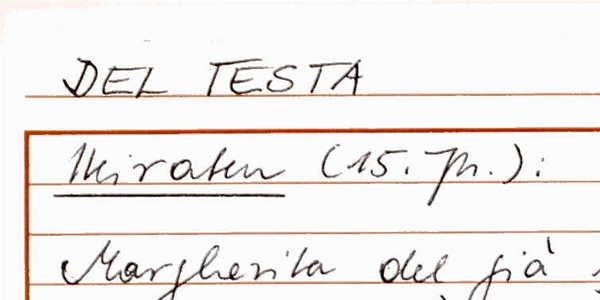 DEL TESTA
Heiraten (15. Jh.):
Margherita del già